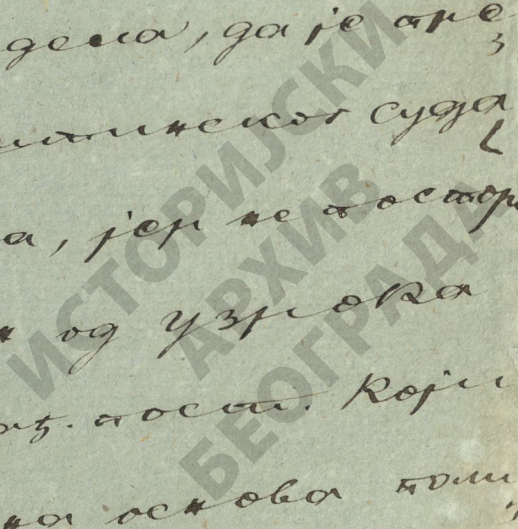 дела, да је пре
суда
а, јер не постоји
од узрока
пост. који
на основа
ИСТОРИЈСКИ
АРХИВ
БЕОГРАДА